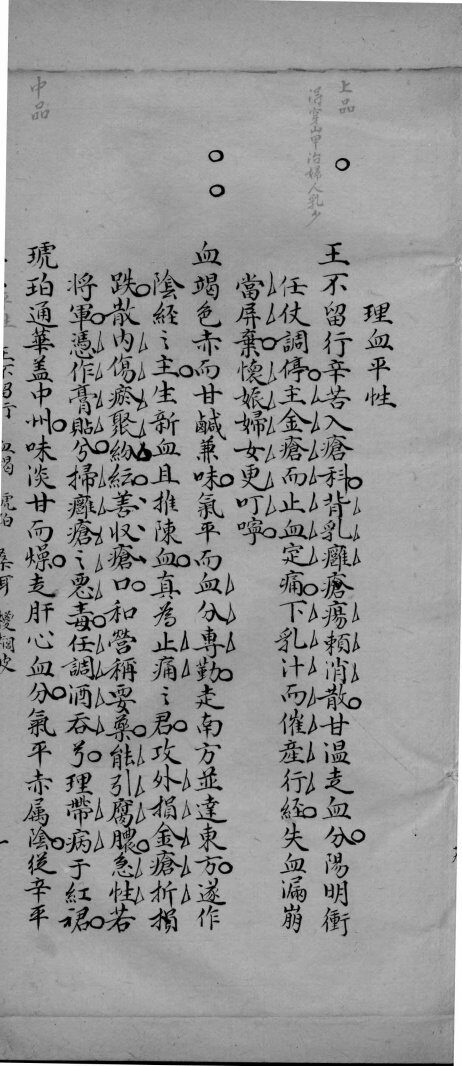 理血平性
上品
王不留行辛苦入瘡科背乳癰瘡瘍賴消散甘温走血分陽明衝
任仗調停主金瘡而止血定痛下乳汁而催産行經失血漏崩
當屏棄懷娠婦女更叮嚀
得穿山甲治婦人乳少
血竭色赤而甘鹹兼味氣平而血分專勤走南方並達東方遂作
陰經之主生新血且推陳血真為止痛之君攻外損金瘡折損
跌散内傷瘀聚紛紜善收瘡口和營稱要藥能引腐膿急性若
將軍憑作膏貼兮掃癰瘡之惡毒任調酒吞兮理帶病于紅裙
中品
琥珀通華盖中州味淡甘而燥走肝心血分氣平赤属陰從辛平
王不留行 血竭 琥珀 桑耳